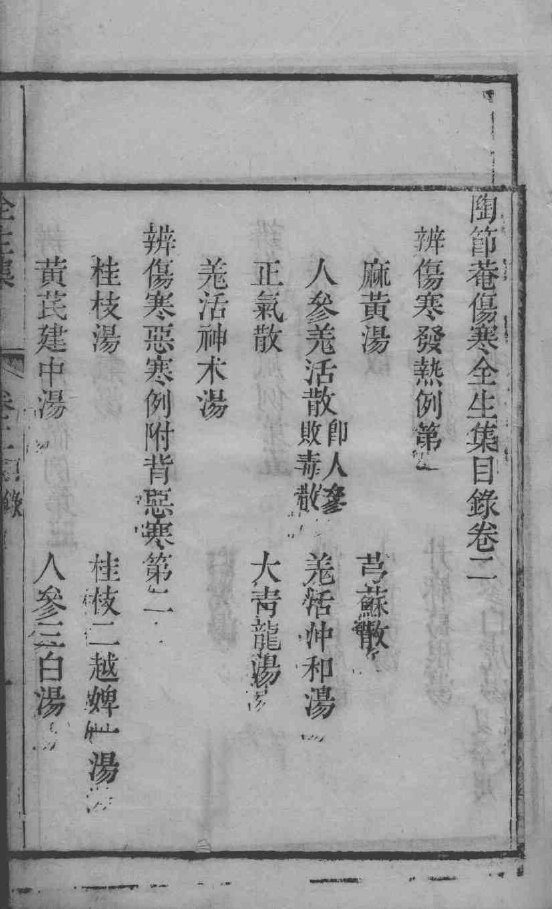 陶節菴傷寒全生集目錄卷二
辨傷寒發熱例第一
麻黃湯 芎蘇散
人參羗活散即人參敗毒散 羗活冲和湯
正氣散 大青龍湯
羗活神朮湯
辨傷寒惡寒例附背惡寒第二
桂枝湯 桂枝二越婢一湯
黃芪建中湯 人參三白湯
全生集 卷二目錄